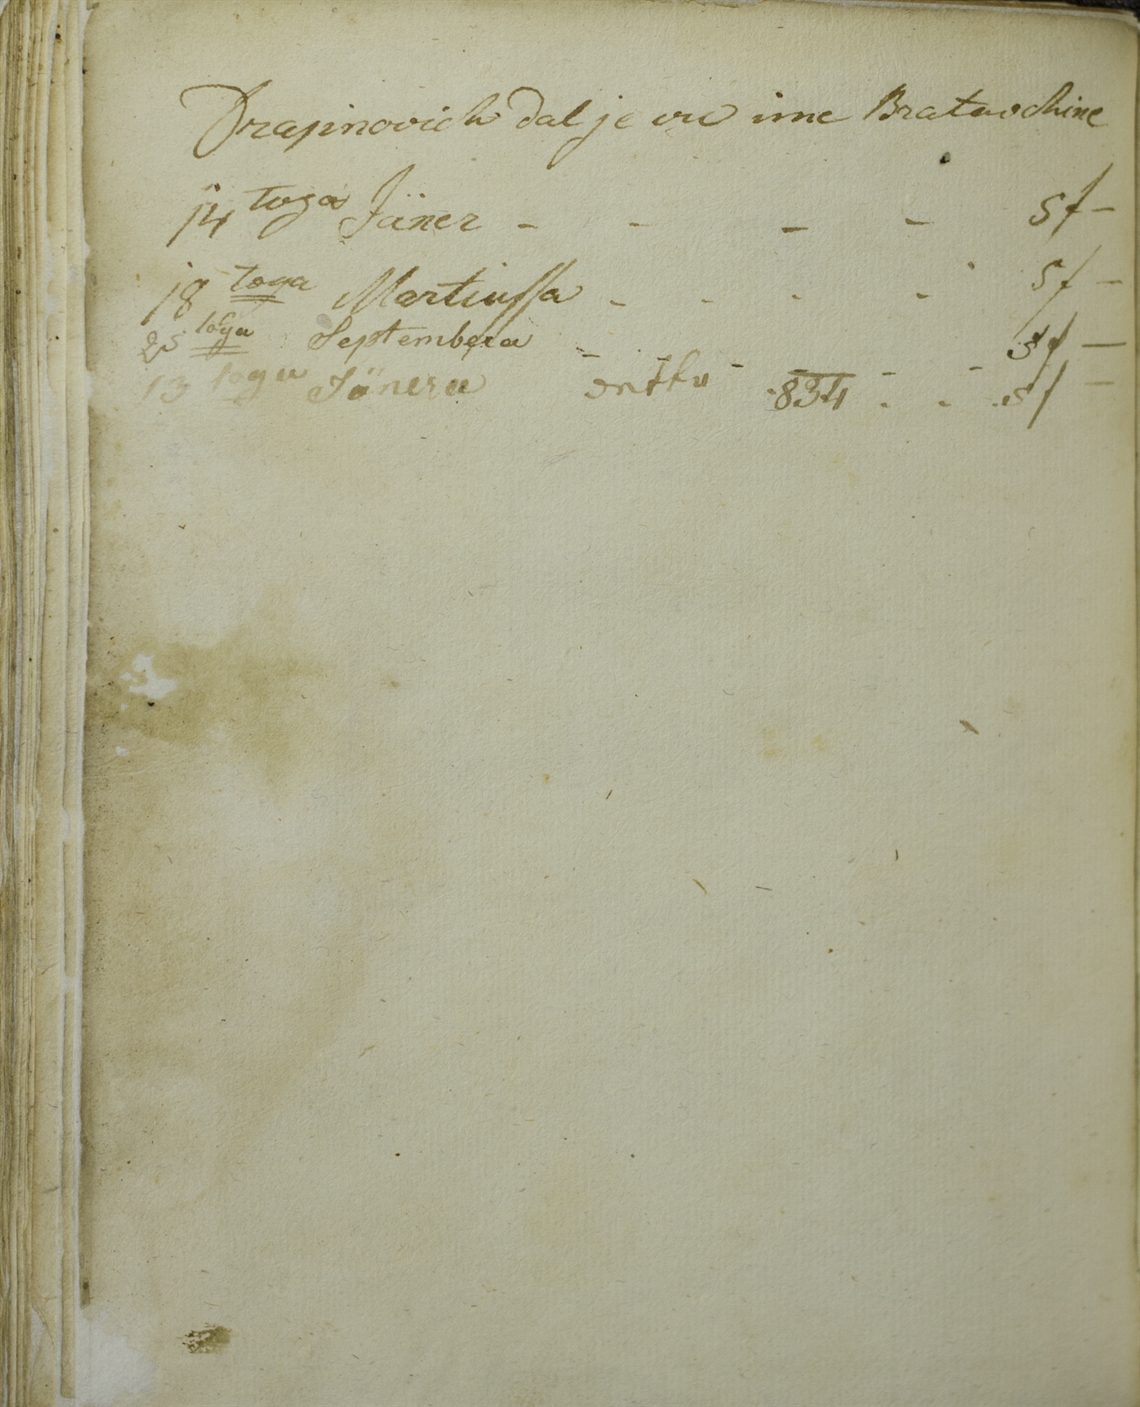 Drapinovich dal je vu ime Bratovchine
14 toga Jäner - - - - 5 f -
18 toga Martiussa - - - - 5 f -
25 toga Septembera - - - 5 f -
13 toga Jänera 834 - - 5 f -